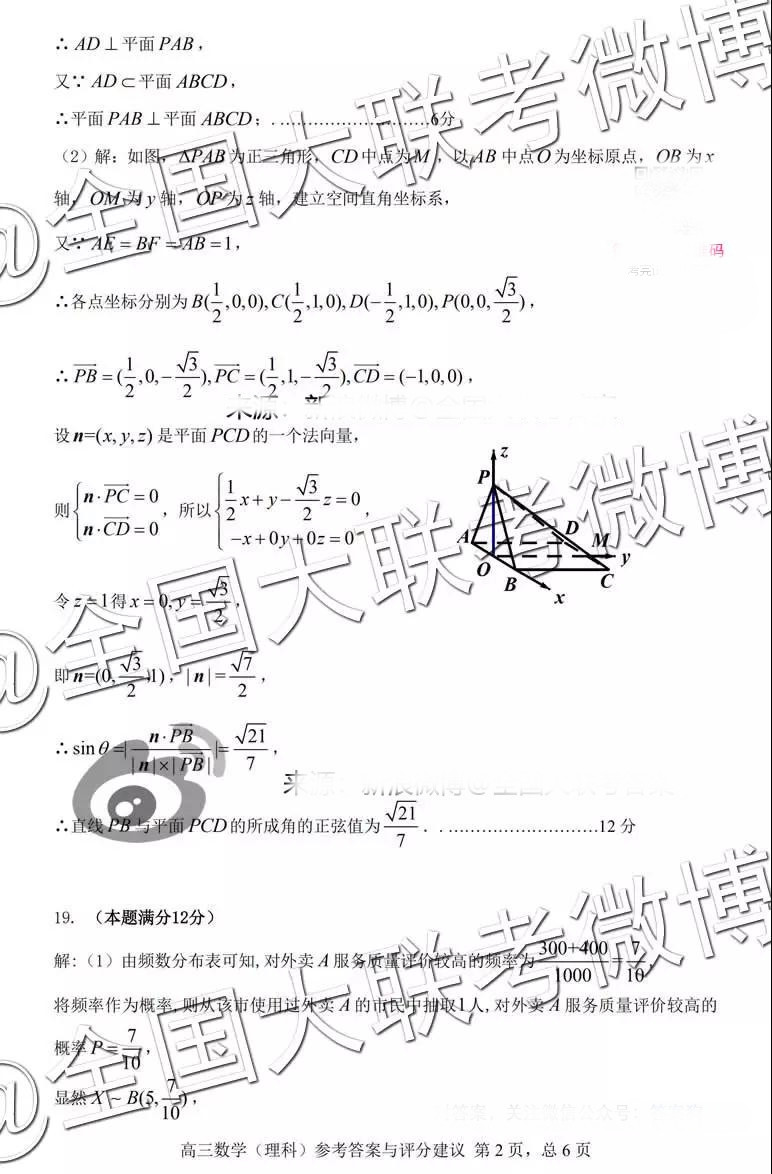 ∴ AD ⊥ 平面 PAB，
又∵ AD ⊂ 平面 ABCD，
∴平面 PAB ⊥ 平面 ABCD；...........................6分
（2）解：如图，ΔPAB 为正三角形，CD 中点为 M，以 AB 中点 O 为坐标原点，OB 为 x
轴，OM 为 y 轴，OP 为 z 轴，建立空间直角坐标系，
又∵ AE = BF = AB = 1，
码
∴各点坐标分别为 B(1/2,0,0), C(1/2,1,0), D(−1/2,1,0), P(0,0,√3/2)，
∴ PB = (1/2,0,−√3/2), PC = (1/2,1,−√3/2), CD = (−1,0,0)，
设 n=(x, y, z) 是平面 PCD 的一个法向量，
则 {n · PC = 0, n · CD = 0，所以 {1/2 x + y − √3/2 z = 0, −x + 0y + 0z = 0，
z
P
A
D
M
y
O
B
C
x
令 z = 1 得 x = 0, y = √3/2，
即 n=(0, √3/2, 1)，| n | = √7/2，
∴ sin θ = | n · PB / | n | × | PB | | = √21/7，
∴直线 PB 与平面 PCD 的所成角的正弦值为 √21/7．...........................12 分
19. （本题满分12分）
解:（1）由频数分布表可知,对外卖 A 服务质量评价较高的频率为 300+400/1000 = 7/10,
将频率作为概率,则从该市使用过外卖 A 的市民中抽取1人,对外卖 A 服务质量评价较高的
概率 P = 7/10，
显然 X ~ B(5, 7/10)，
高三数学（理科）参考答案与评分建议 第 2 页，总 6 页
@全国大联考微博
@全国大联考微博
@全国大联考微博